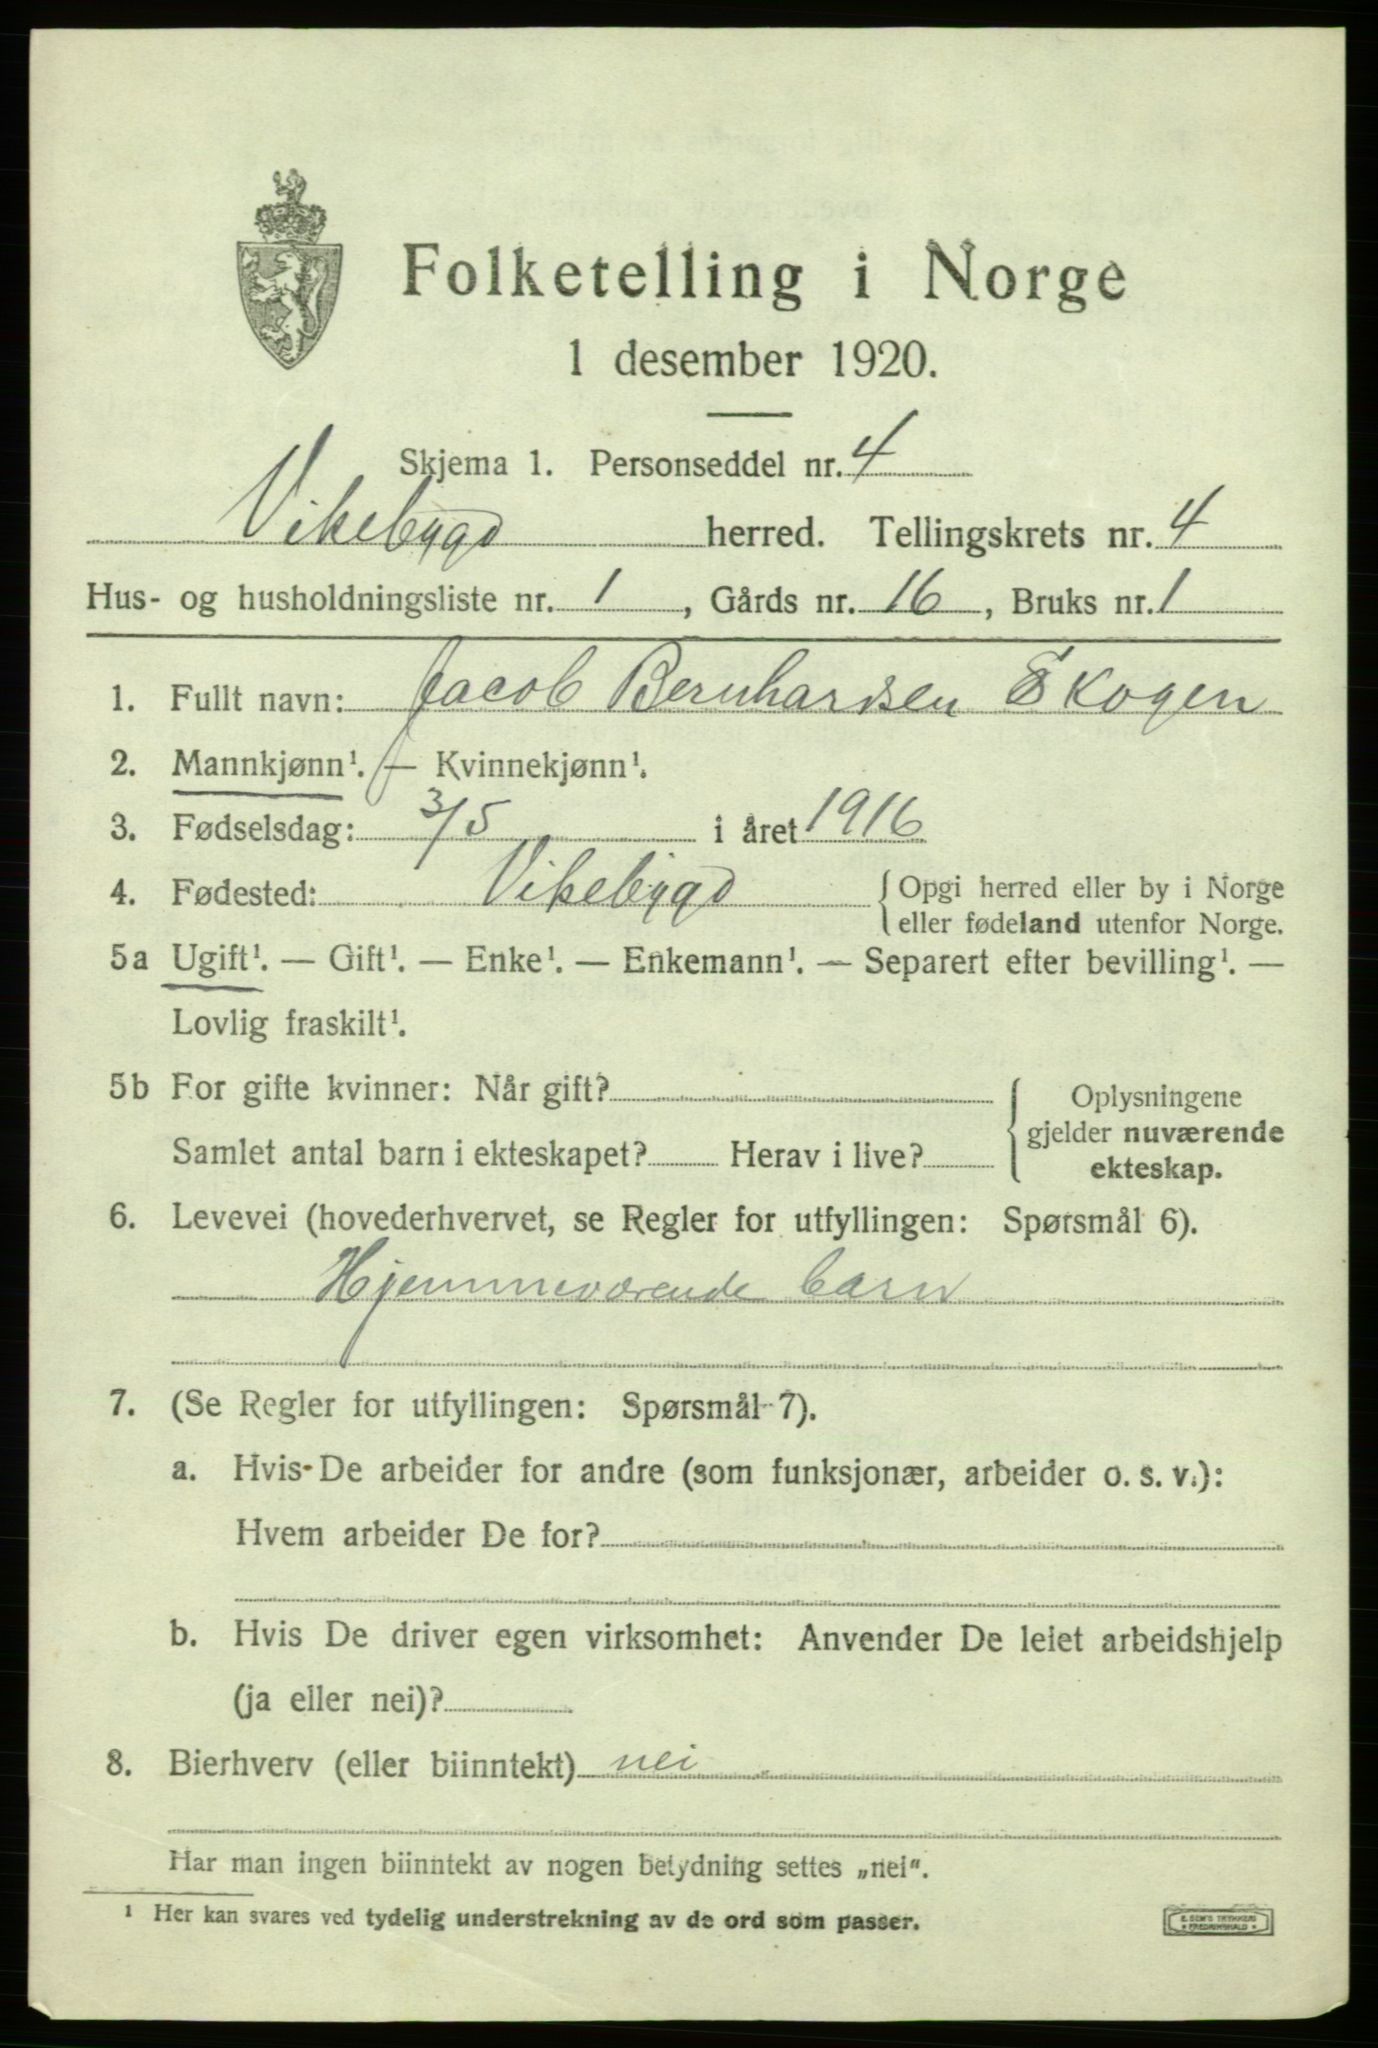 Folketelling i Norge
1 desember 1920.
Skjema 1. Personseddel nr. 4
Vikebygd herred. Tellingskrets nr. 4
Hus- og husholdningsliste nr. 1, Gårds nr. 16, Bruks nr. 1
1. Fullt navn: Jacob Bernhardsen Skogen
2. Mannkjønn¹. — Kvinnekjønn¹.
3. Fødselsdag: 3/5 i året 1916
4. Fødested: Vikebygd { Opgi herred eller by i Norge
eller fødeland utenfor Norge.
5a Ugift¹. — Gift¹. — Enke¹. — Enkemann¹. — Separert efter bevilling¹. —
Lovlig fraskilt¹.
5b For gifte kvinner: Når gift? { Oplysningene
gjelder nuværende
Samlet antal barn i ekteskapet? Herav i live? ekteskap.
6. Levevei (hovederhvervet, se Regler for utfyllingen: Spørsmål 6).
Hjemmeværende barn
7. (Se Regler for utfyllingen: Spørsmål 7).
a. Hvis De arbeider for andre (som funksjonær, arbeider o. s. v.):
Hvem arbeider De for?
b. Hvis De driver egen virksomhet: Anvender De leiet arbeidshjelp
(ja eller nei)?
8. Bierhverv (eller biinntekt) nei
Har man ingen biinntekt av nogen betydning settes „nei“.
¹ Her kan svares ved tydelig understrekning av de ord som passer.
E. SEM'S TRYKKERI
FREDRIKSHALD